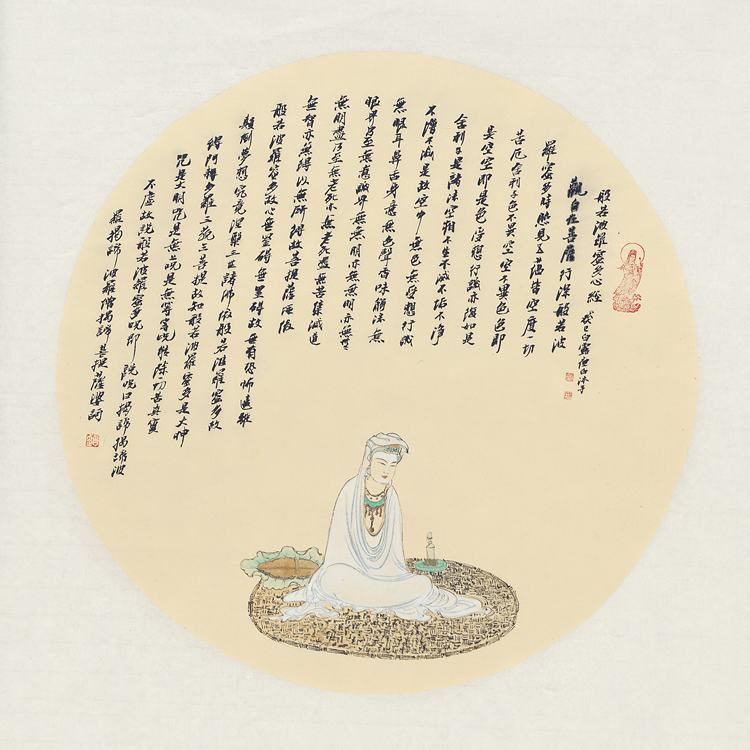 般若波羅蜜多心經
癸巳白露
沐手
觀自在菩薩行深般若波
羅蜜多時照見五蘊皆空度一切
苦厄舍利子色不異空空不異色色即
是空空即是色受想行識亦復如是
舍利子是諸法空相不生不滅不垢不淨
不增不減是故空中無色無受想行識
無眼耳鼻舌身意無色聲香味觸法無
眼界乃至無意識界無無明亦無
無明盡乃至無老死亦無老死盡無苦集滅道
無智亦無得以無所得故菩提薩埵依
般若波羅蜜多故心無罣礙無罣礙故無有恐怖遠離
顛倒夢想究竟涅槃三世諸佛依般若波羅蜜多故
得阿耨多羅三藐三菩提故知般若波羅蜜多是大神
咒是大明咒是無上咒是無等等咒能除一切苦真實
不虛故說般若波羅蜜多咒即說咒曰揭諦揭諦波
羅揭諦波羅僧揭諦菩提薩婆訶